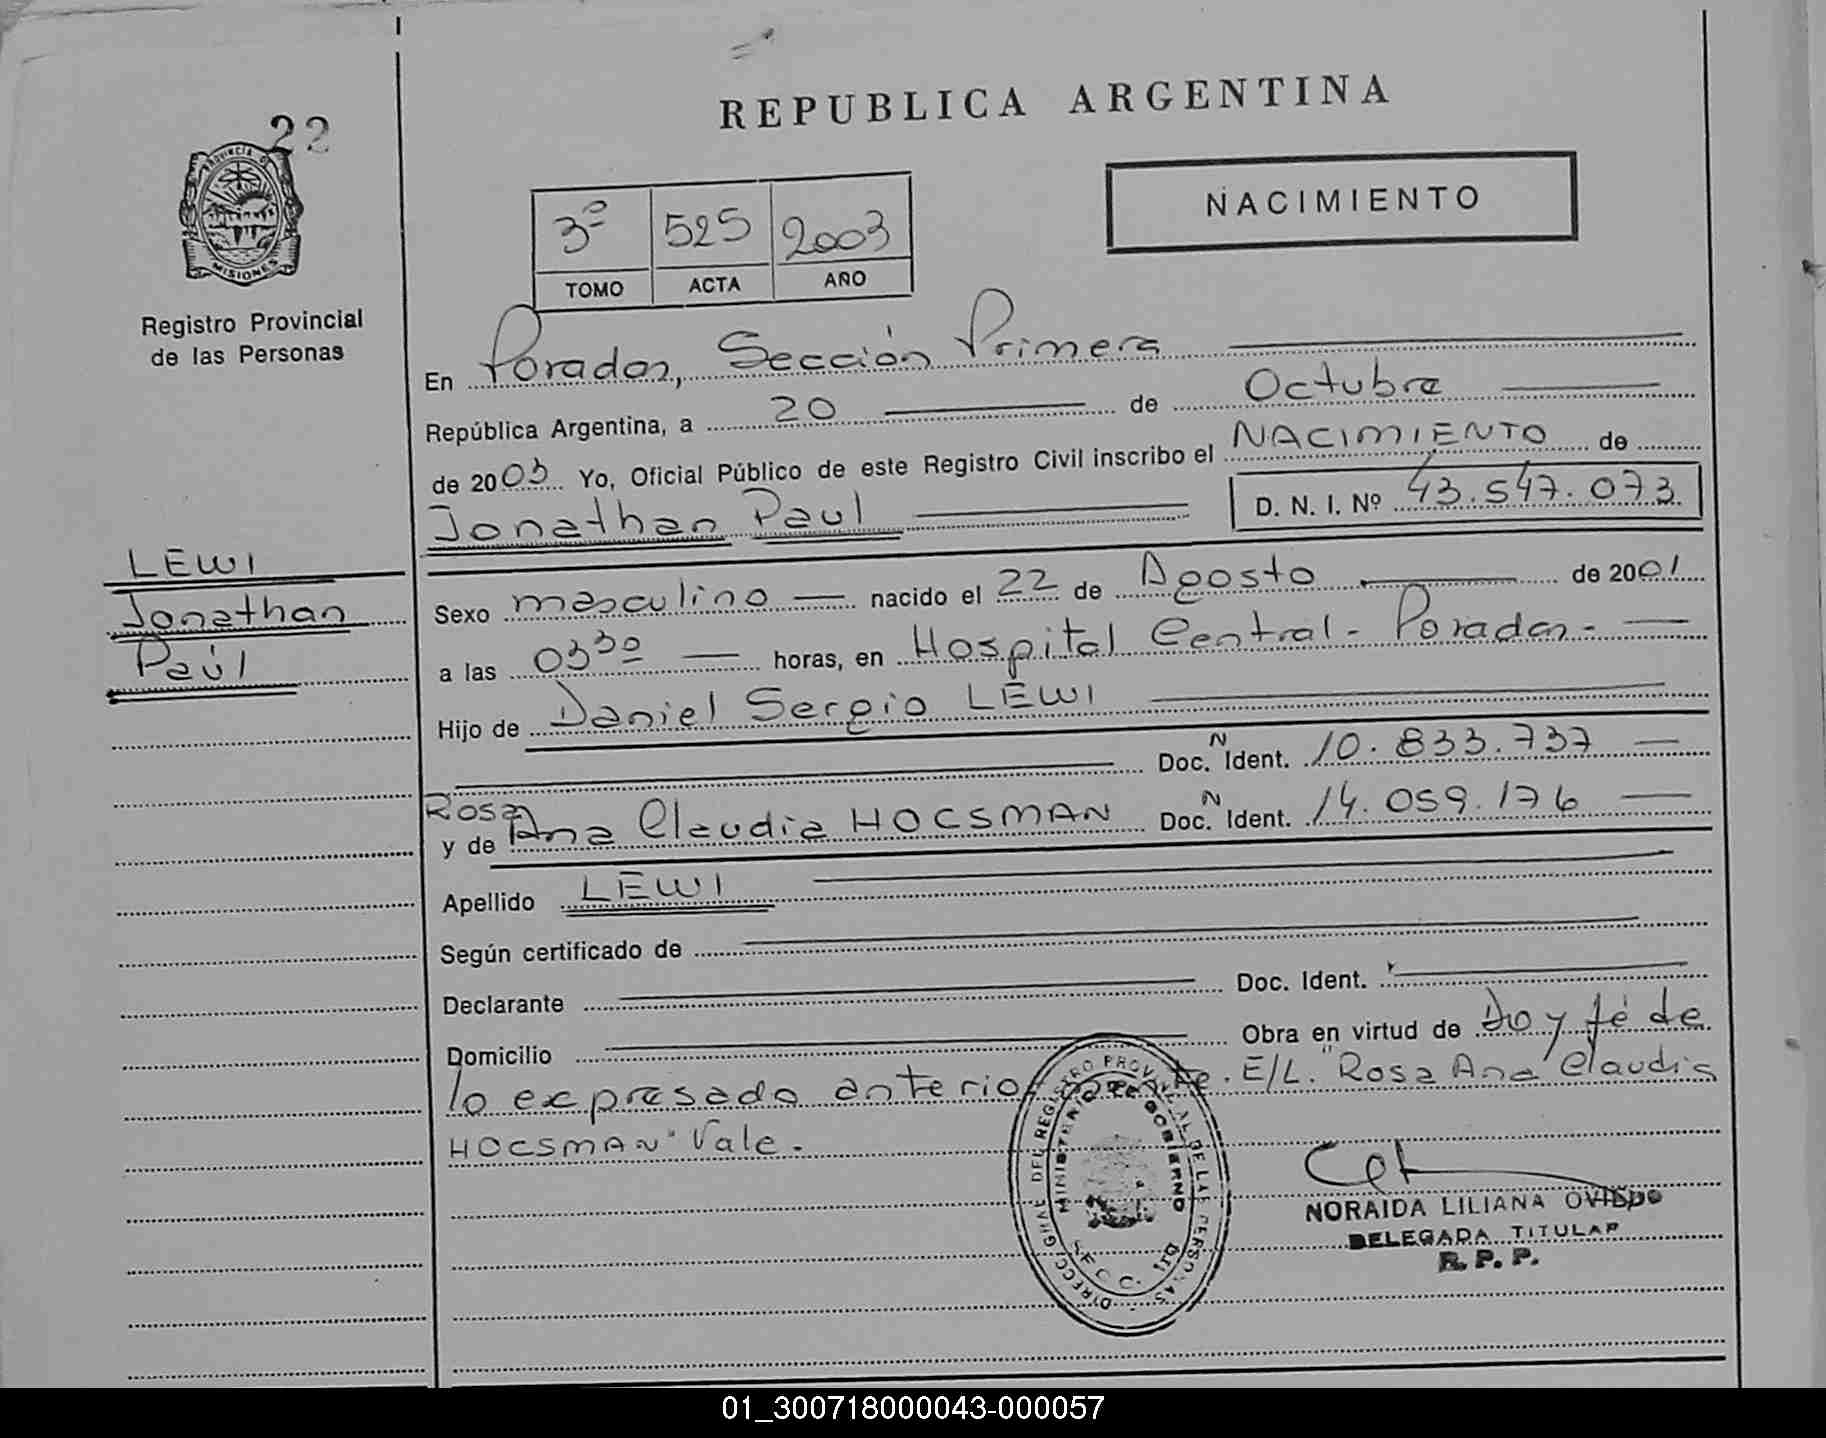 22
PROVINCIA DE
MISIONES
Registro Provincial
de las Personas
REPUBLICA ARGENTINA
NACIMIENTO
3º 525 2003
TOMO ACTA AÑO
En Posadas, Sección Primera
República Argentina, a 20 de Octubre
de 2003 Yo, Oficial Público de este Registro Civil inscribo el NACIMIENTO de
Jonathan Paul D. N. I. Nº 43.547.073
LEWI
Jonathan
Paúl
Sexo masculino nacido el 22 de Agosto de 2001
a las 03³⁰ horas, en Hospital Central - Posadas -
Hijo de Daniel Sergio LEWI
Doc. N Ident. 10.833.737
Rosa
y de Ana Claudia HOCSMAN Doc. N Ident. 14.059.176
Apellido LEWI
Según certificado de
Declarante Doc. Ident.
Domicilio Obra en virtud de Doy fé de
lo expresado anteriormente. E/L. "Rosa Ana Claudia
HOCSMAN" Vale.
DIRECC. GRAL. DEL REGISTRO PROVINCIAL DE LAS PERSONAS
MINISTERIO DE GOBIERNO
SECC.
NORAIDA LILIANA OVIEDO
DELEGADA TITULAR
R. P. P.
01_300718000043-000057